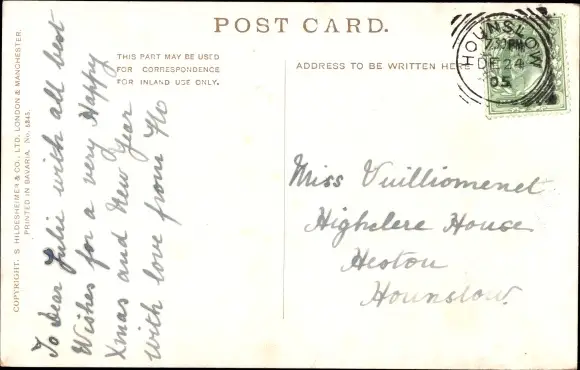 POST CARD.
COPYRIGHT. S. HILDESHEIMER & CO., LTD. LONDON & MANCHESTER.
PRINTED IN BAVARIA. No.
THIS PART MAY BE USED
FOR CORRESPONDENCE
FOR INLAND USE ONLY.
To Dear Julie with all best
Wishes for a very Happy
Xmas and New Year
with love from Flo
ADDRESS TO BE WRITTEN HERE
HOUNSLOW
DE 24
05
Miss Vuilliomenet
Highclere House
Heston
Hounslow.